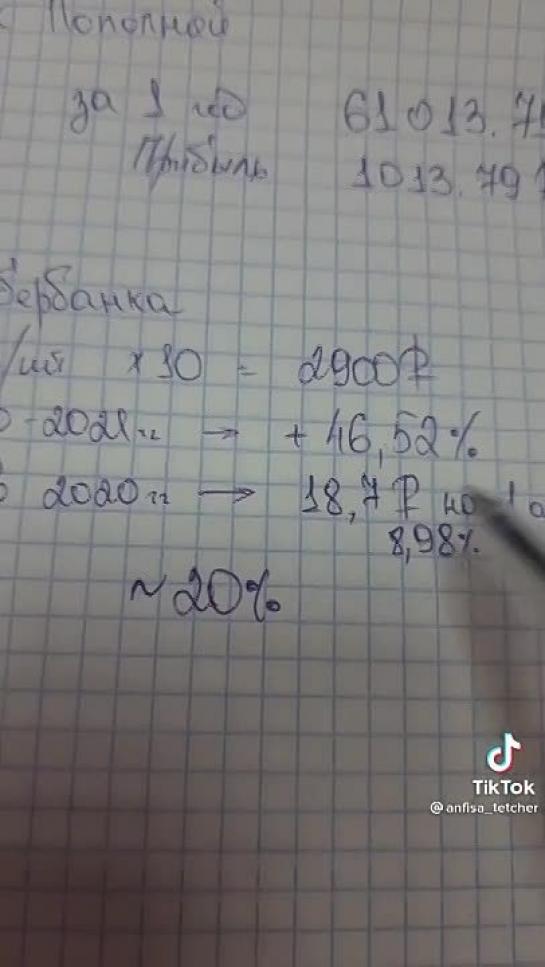 Пополной
за 1 год 61013.79
Прибыль 1013.79
бербанка
/ий х 30 = 2900₽
- 2021гг → + 46,52%
2020гг → 18,7₽ на 1 а
8,98%
~ 20%
TikTok
@anfisa_tetcher